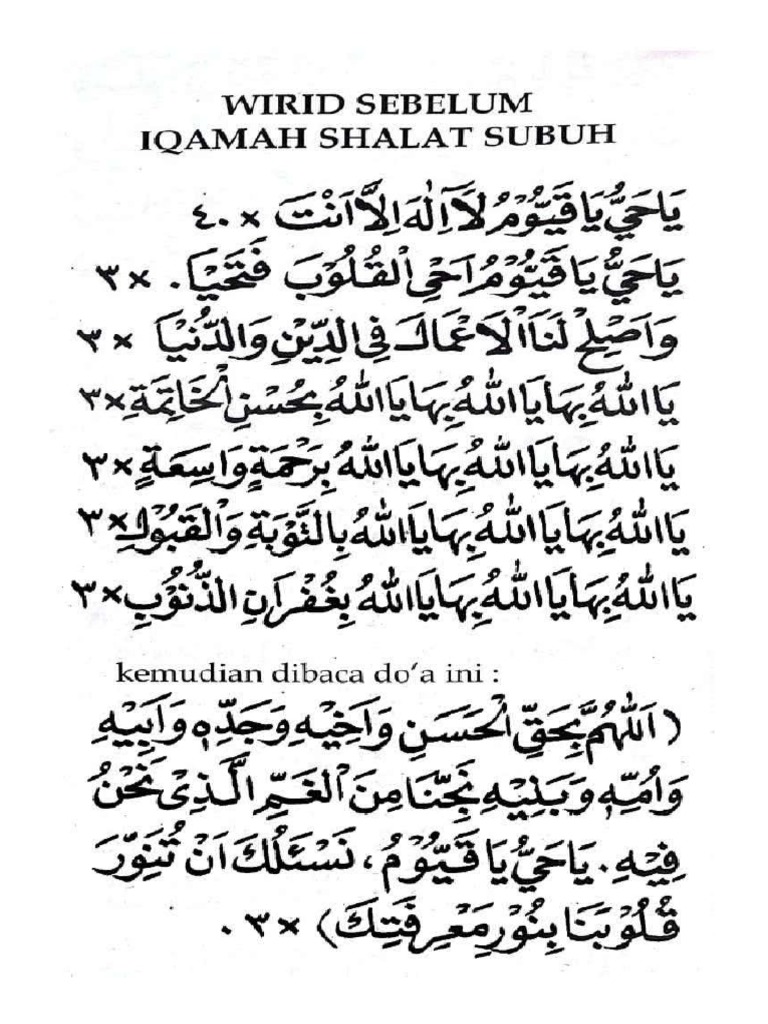 WIRID SEBELUM
IQAMAH SHALAT SUBUH
يَاحَيُّ يَا قَيُّوْمُ لَآ اِلٰهَ اِلَّا اَنْتَ × ٤٠
يَاحَيُّ يَا قَيُّوْمُ اَحْيِ الْقُلُوْبَ فَتَحْيَا. × ٣
وَاَصْلِحْ لَنَا الْاَعْمَالَ فِي الدِّيْنِ وَالدُّنْيَا × ٣
يَا اللّٰهُ بِهَا يَا اللّٰهُ بِهَا يَا اللّٰهُ بِحُسْنِ الْخَاتِمَةِ × ٣
يَا اللّٰهُ بِهَا يَا اللّٰهُ بِهَا يَا اللّٰهُ بِرَحْمَةٍ وَاسِعَةٍ × ٣
يَا اللّٰهُ بِهَا يَا اللّٰهُ بِهَا يَا اللّٰهُ بِالتَّوْبَةِ وَالْقَبُوْلِ × ٣
يَا اللّٰهُ بِهَا يَا اللّٰهُ بِهَا يَا اللّٰهُ بِغُفْرَانِ الذُّنُوْبِ × ٣
kemudian dibaca do‘a ini :
(اَللّٰهُمَّ بِحَقِّ الْحَسَنِ وَاَخِيْهِ وَجَدِّهِ وَاَبِيْهِ
وَاُمِّهِ وَبَنِيْهِ نَجِّنَا مِنَ الْغَمِّ الَّذِيْ نَحْنُ
فِيْهِ. يَاحَيُّ يَا قَيُّوْمُ، نَسْئَلُكَ اَنْ تُنَوِّرَ
قُلُوْبَنَا بِنُوْرِ مَعْرِفَتِكَ) × ٣.